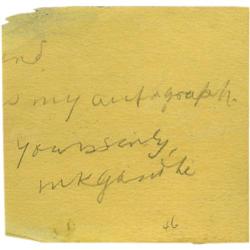 my autograph.
Yours sincly,
MKGandhi
46